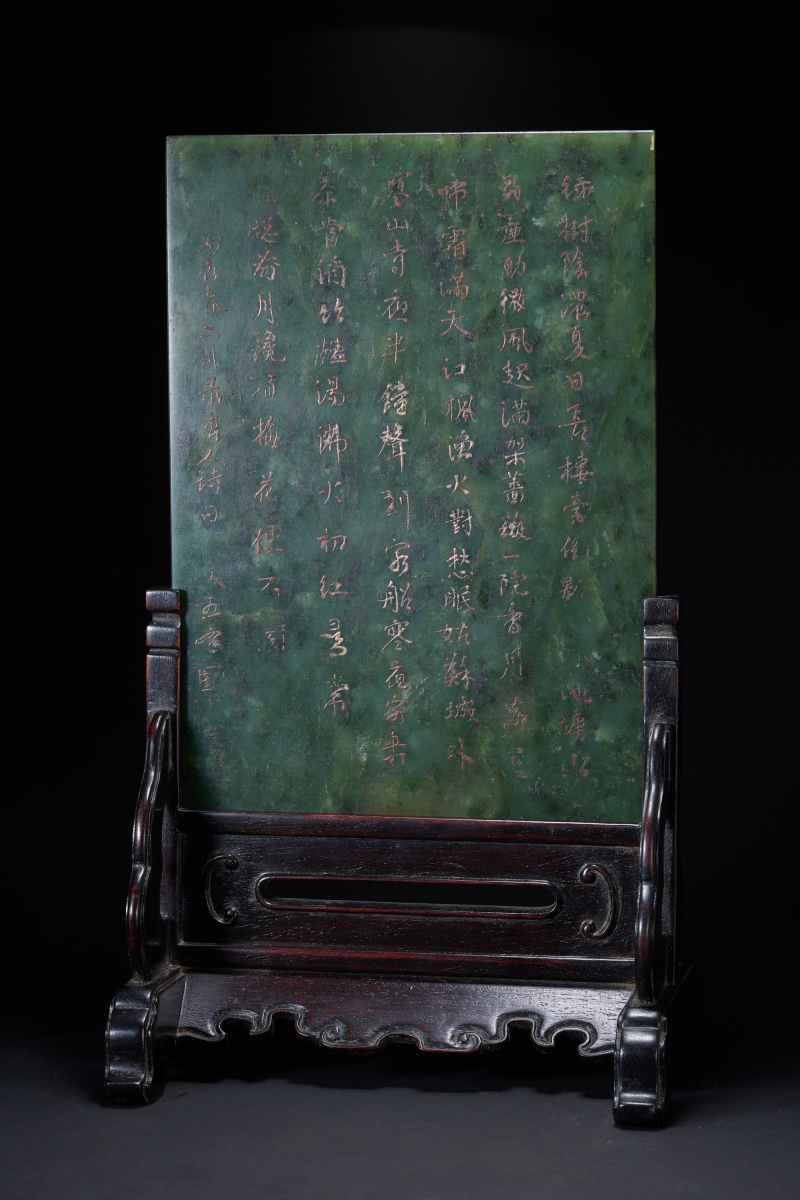 綠樹陰濃夏日長樓臺倒影池塘水
晶簾動微風起滿架薔薇一院香月落烏
啼霜滿天江楓漁火對愁眠姑蘇城外
寒山寺夜半鐘聲到客船寒夜客來
茶當酒竹爐湯沸火初紅尋常
窗前月纔有梅花便不同
年二月人詩